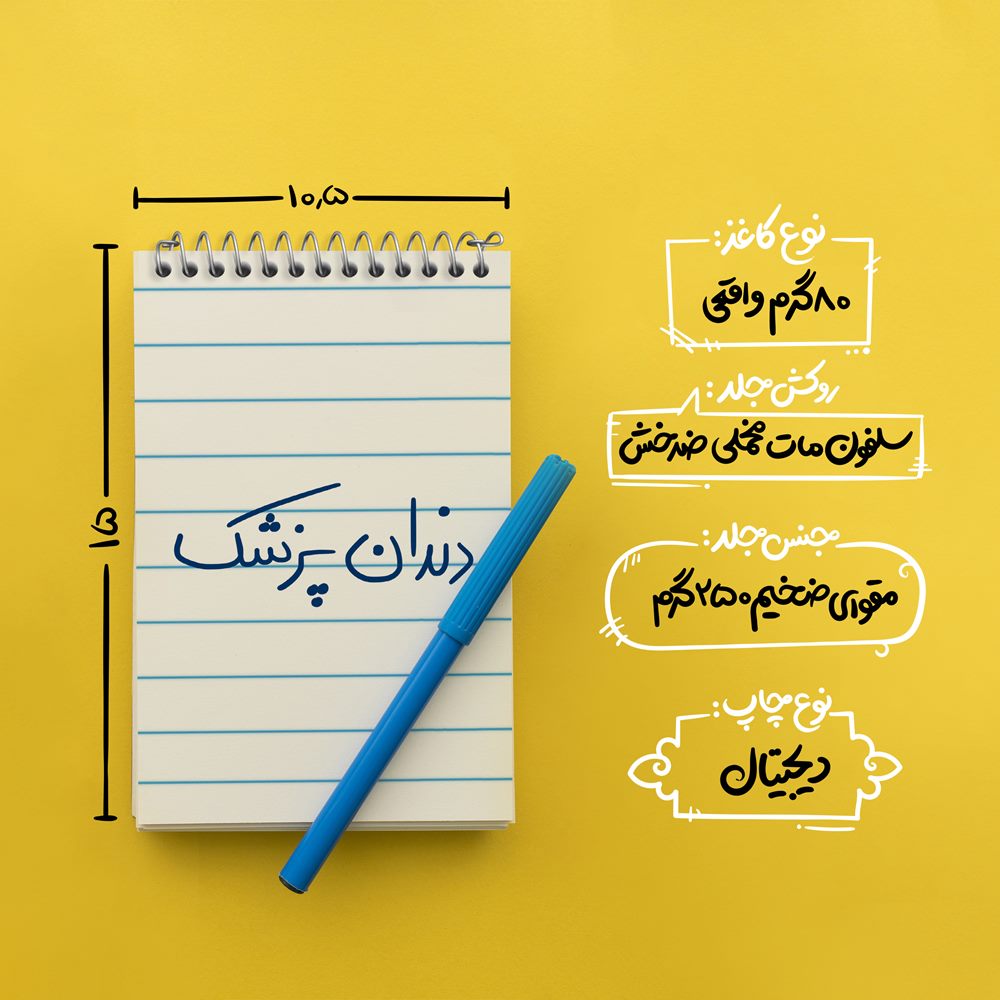 ۱۰٫۵
۱۵
دندان پزشک
نوع کاغذ:
۸۰ گرم واقعی
روکش جلد:
سلفون مات مخملی ضدخش
جنس جلد:
مقوای ضخیم ۲۵۰ گرم
نوع چاپ:
دیجیتال